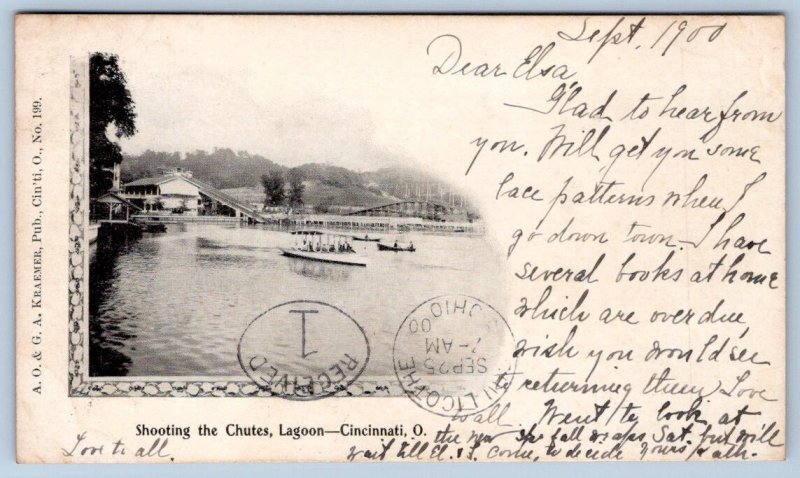 Sept, 1900
Dear Elsa,
Glad to hear from
you. Will get you some
lace patterns when I
go down town. I have
several books at home
which are over due,
wish you would see
to returning them. Love
to all. Went to look at
the new fall wraps, Sat. but will
wait till El. come, to decide. Yours
Love to all.
Shooting the Chutes, Lagoon—Cincinnati, O.
A. O. & G. A. KRAEMER, Pub., Cin'ti, O., No. 199.
RECEIVED
1
CHILLICOTHE OHIO
SEP 25
7-AM
00